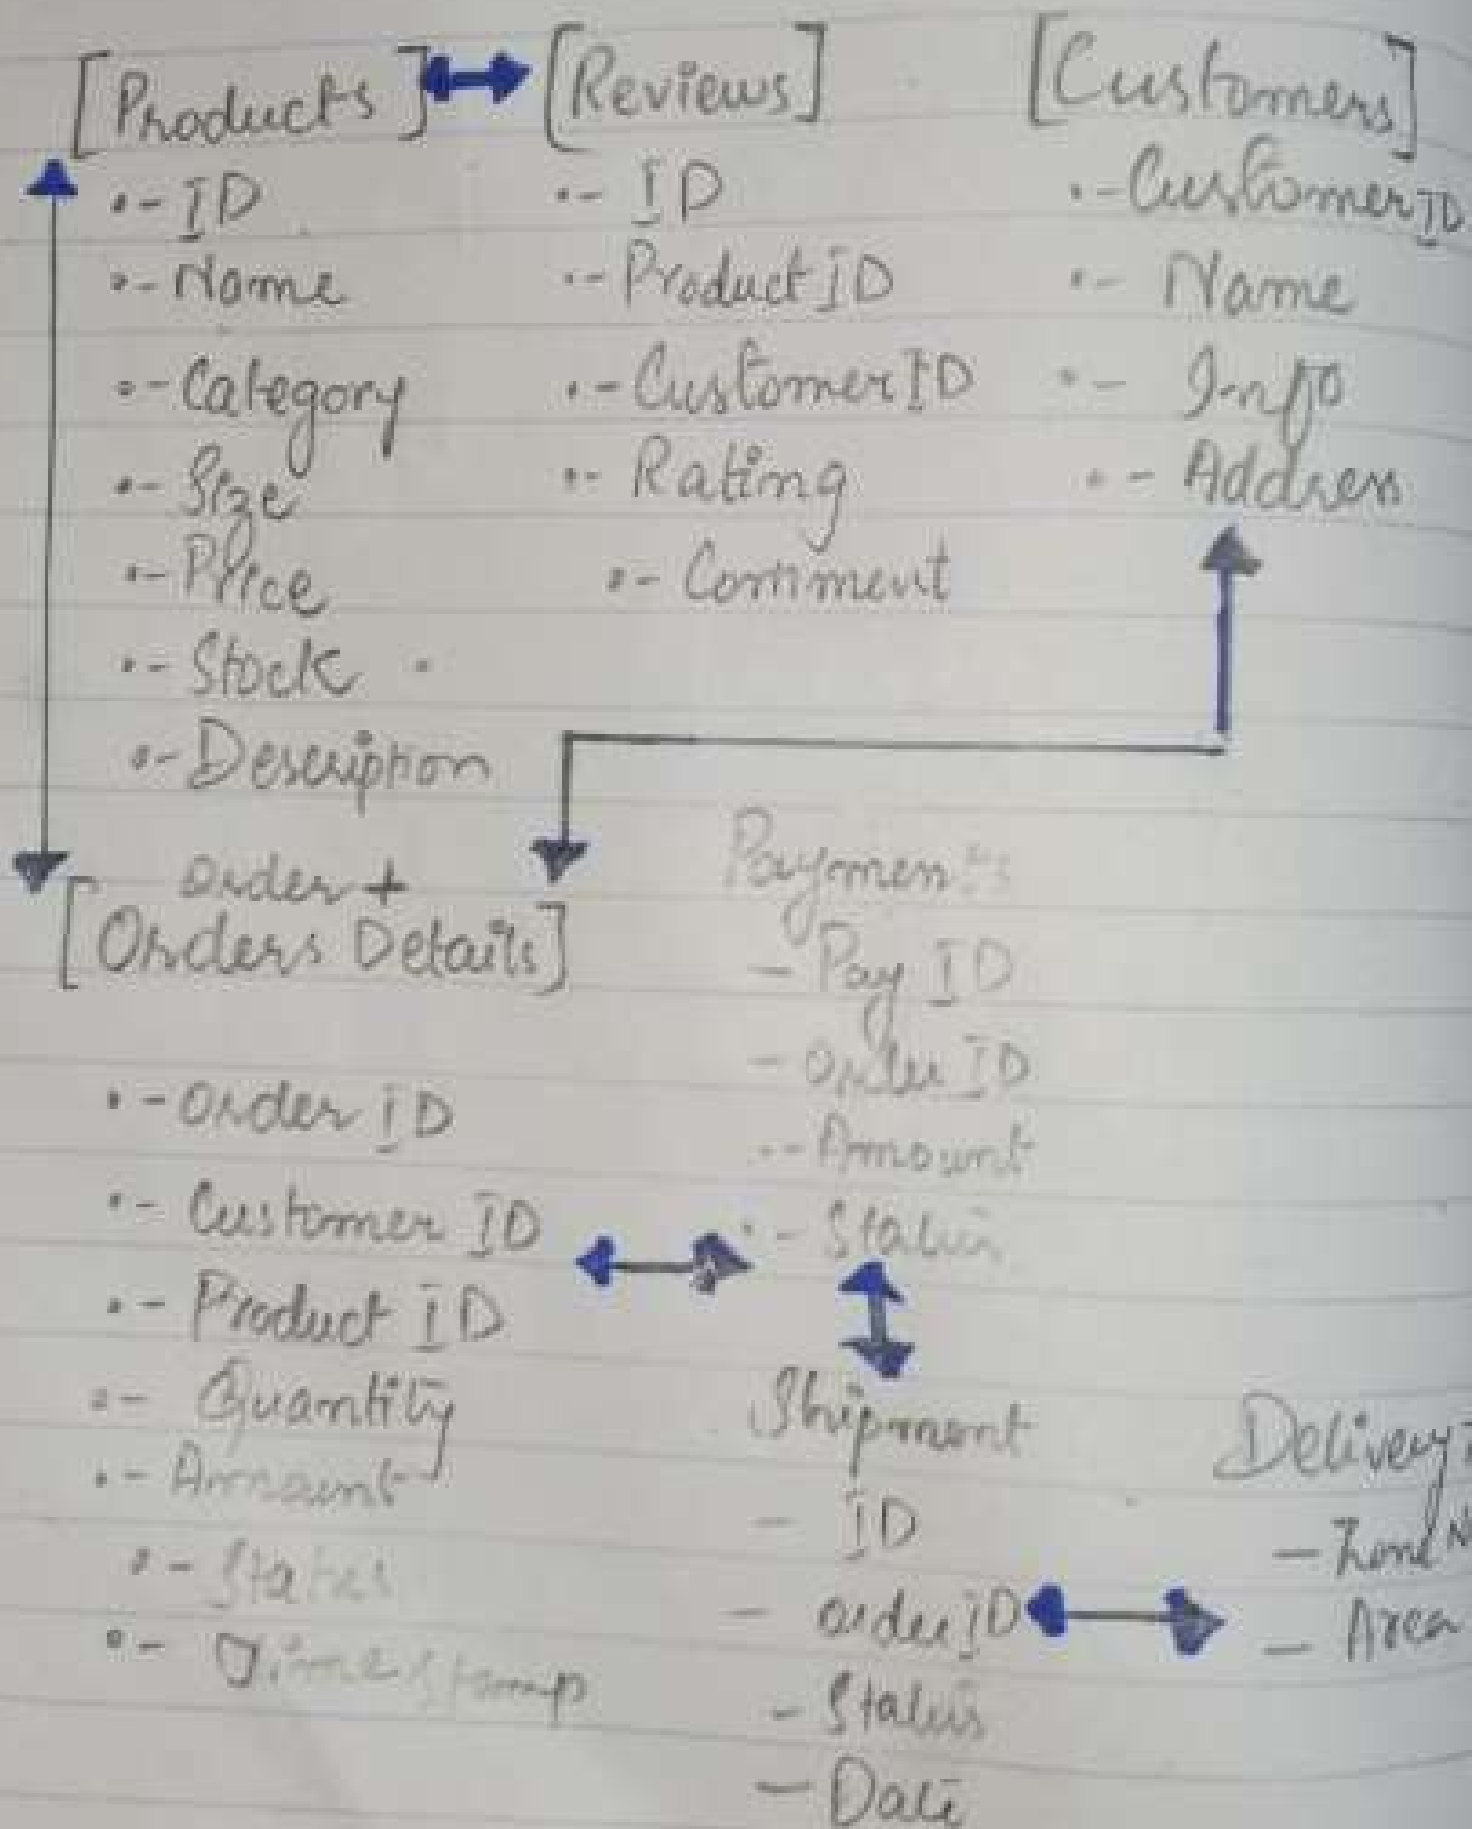 [Products]
•- ID
•- Name
•- Category
•- Size
•- Price
•- Stock
•- Description
[Reviews]
•- ID
•- Product ID
•- Customer ID
•- Rating
•- Comment
[Customers]
•- Customer ID
•- Name
•- Info
•- Address
order +
[Orders Details]
•- Order ID
•- Customer ID
•- Product ID
•- Quantity
•- Amount
•- Status
•- Time stamp
Payments
- Pay ID
- order ID
•- Amount
•- Status
Shipment
- ID
- order ID
- Status
- Date
Delivery
- Zone
- Area